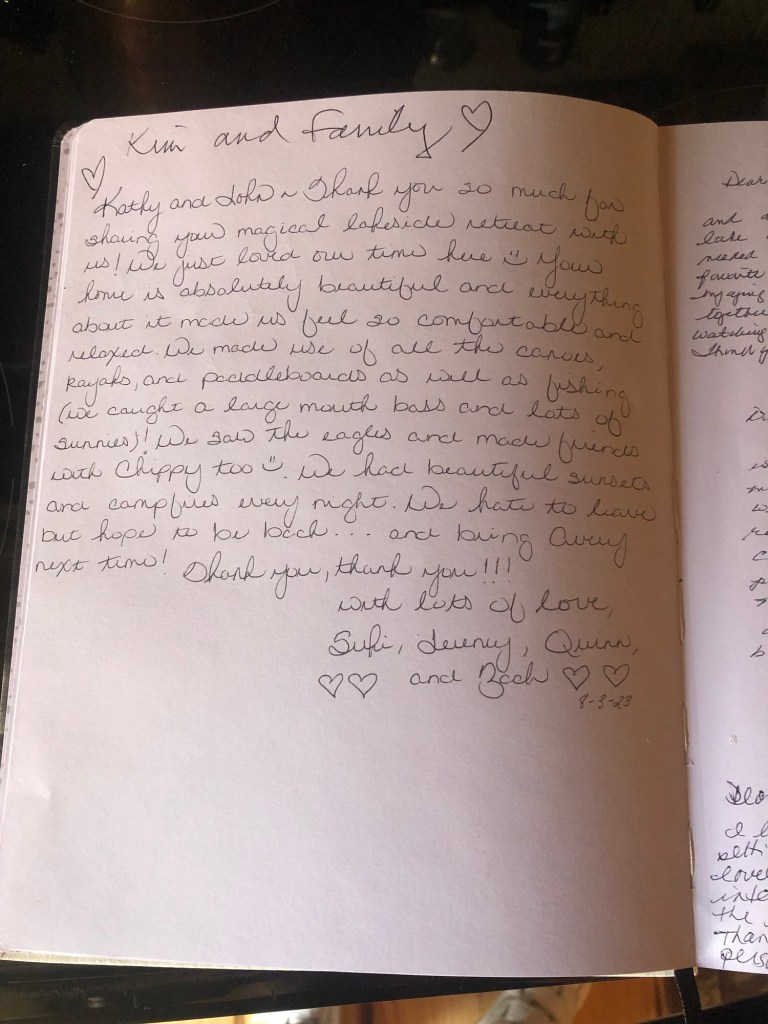 Kim and Family ♡
♡
Kathy and John ~ Thank you so much for
sharing your magical lakeside retreat with
us! We just loved our time here ☺ Your
home is absolutely beautiful and everything
about it made us feel so comfortable and
relaxed. We made use of all the canoes,
kayaks, and paddleboards as well as fishing
(we caught a large mouth bass and lots of
sunnies)! We saw the eagles and made friends
with Chippy too ☺. We had beautiful sunsets
and campfires every night. We hate to leave
but hope to be back... and bring Avery
next time! Thank you, thank you!!!
with lots of love,
Suki, Jeremy, Quinn,
♡♡ and Zach ♡ ♡
8-3-23
Dear
and
lake
needed
favorite
enjoying
together
watching
Thank y
I l
setti
love
inte
the
Than
pers